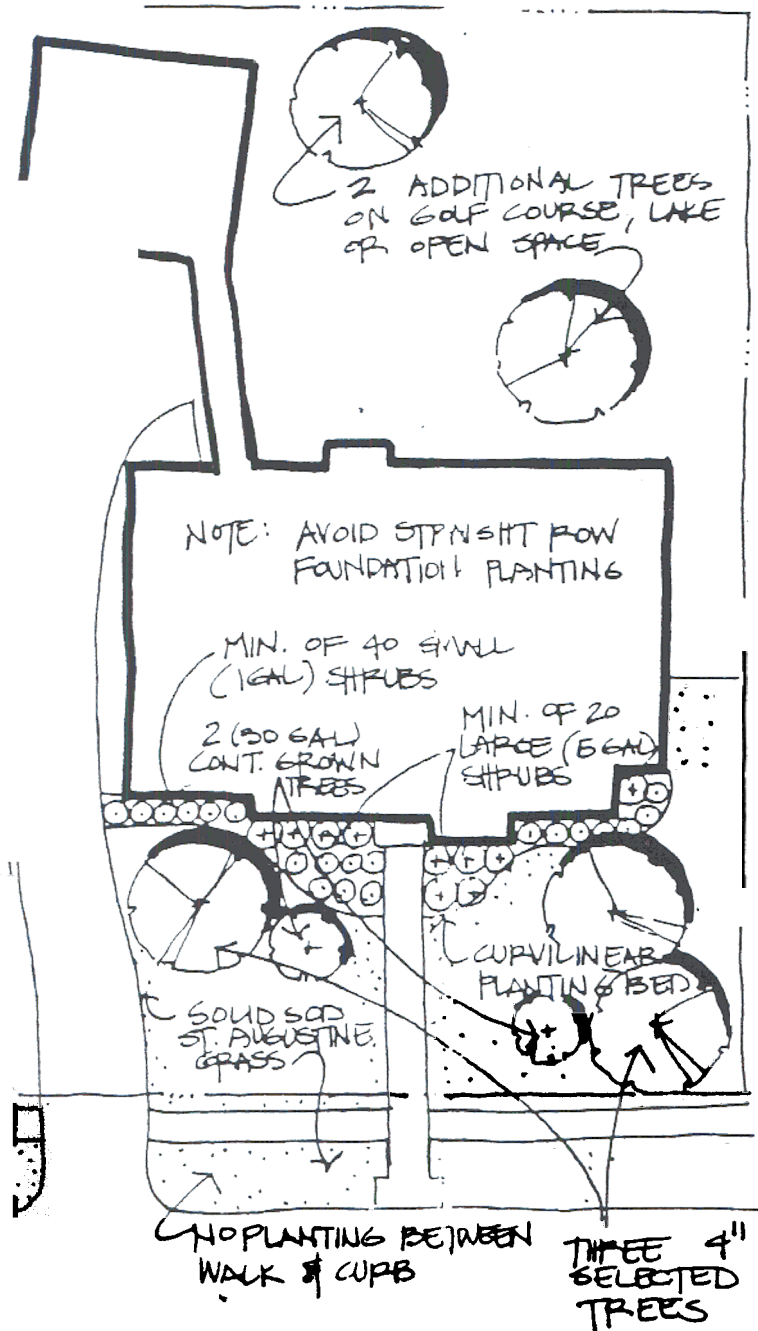 2 ADDITIONAL TREES
ON GOLF COURSE, LAKE
OR OPEN SPACE
NOTE: AVOID STRAIGHT ROW
FOUNDATION PLANTING
MIN. OF 40 SMALL
(1GAL) SHRUBS
2 (30 GAL)
CONT. GROWN
TREES
MIN. OF 20
LARGE (5 GAL)
SHRUBS
CURVILINEAR
PLANTING BED
SOLID SOD
ST. AUGUSTINE
GRASS
NO PLANTING BETWEEN
WALK & CURB
THREE 4"
SELECTED
TREES